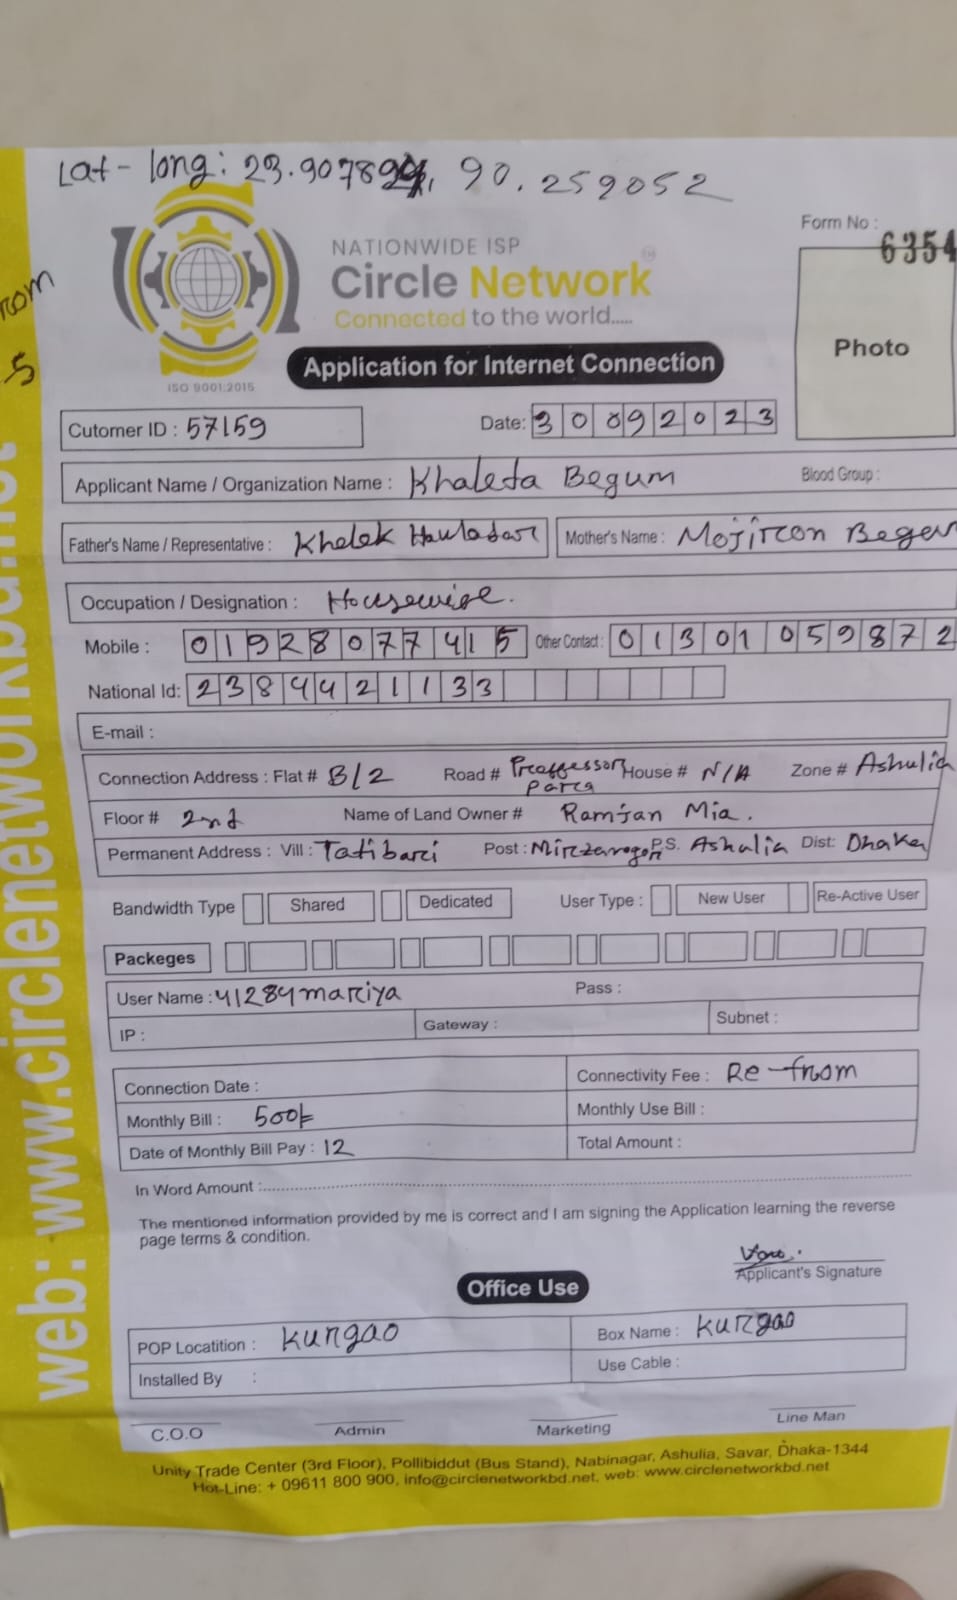 Lat - long: 23.90789, 90.259052
Form No :
6354
NATIONWIDE ISP
Circle Network
Connected to the world.....
Photo
rom
5
ISO 9001:2015
Application for Internet Connection
Cutomer ID : 57159
Date: 30092023
Applicant Name / Organization Name : Khaleda Begum
Blood Group :
Father's Name / Representative : Khelek Hauladar
Mother's Name : Mojircon Begum
Occupation / Designation : Housewife.
Mobile : 01928077415 Other Contact : 01301059872
National Id: 2384421133
E-mail :
Connection Address : Flat # B/2 Road # Proffessor Para House # N/A Zone # Ashulia
Floor # 2nd Name of Land Owner # Ramjan Mia.
Permanent Address : Vill : Tatibari Post : Mirzanagor P.S. Ashulia Dist: Dhaka
Bandwidth Type Shared Dedicated User Type : New User Re-Active User
Packeges
User Name : 41284mariya Pass :
IP : Gateway : Subnet :
Connection Date :
Connectivity Fee : Re-from
Monthly Bill : 500/=
Monthly Use Bill :
Date of Monthly Bill Pay : 12
Total Amount :
In Word Amount :
The mentioned information provided by me is correct and I am signing the Application learning the reverse
page terms & condition.
Applicant's Signature
Office Use
POP Locatition : Kurgao
Box Name : Kurgao
Installed By :
Use Cable :
C.O.O Admin Marketing Line Man
Unity Trade Center (3rd Floor), Pollibiddut (Bus Stand), Nabinagar, Ashulia, Savar, Dhaka-1344
Hot-Line: + 09611 800 900, info@circlenetworkbd.net, web: www.circlenetworkbd.net
web: www.circlenetworkbd.net